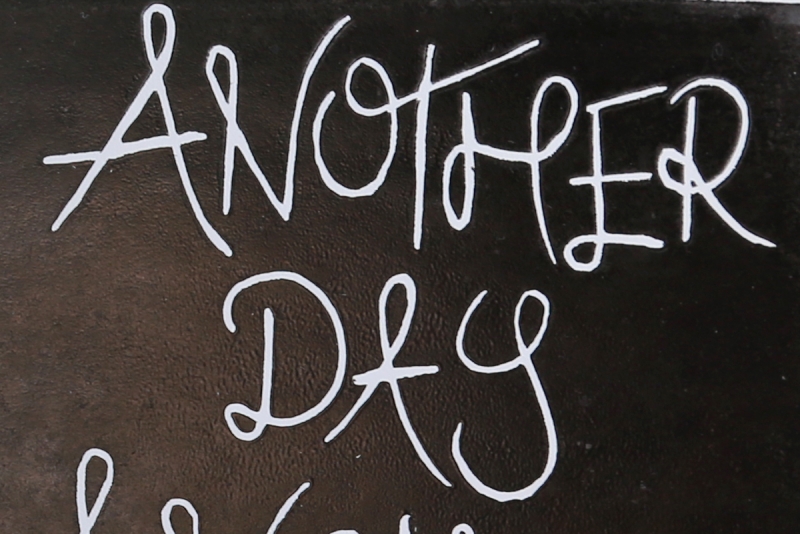 ANOTHER
DAY